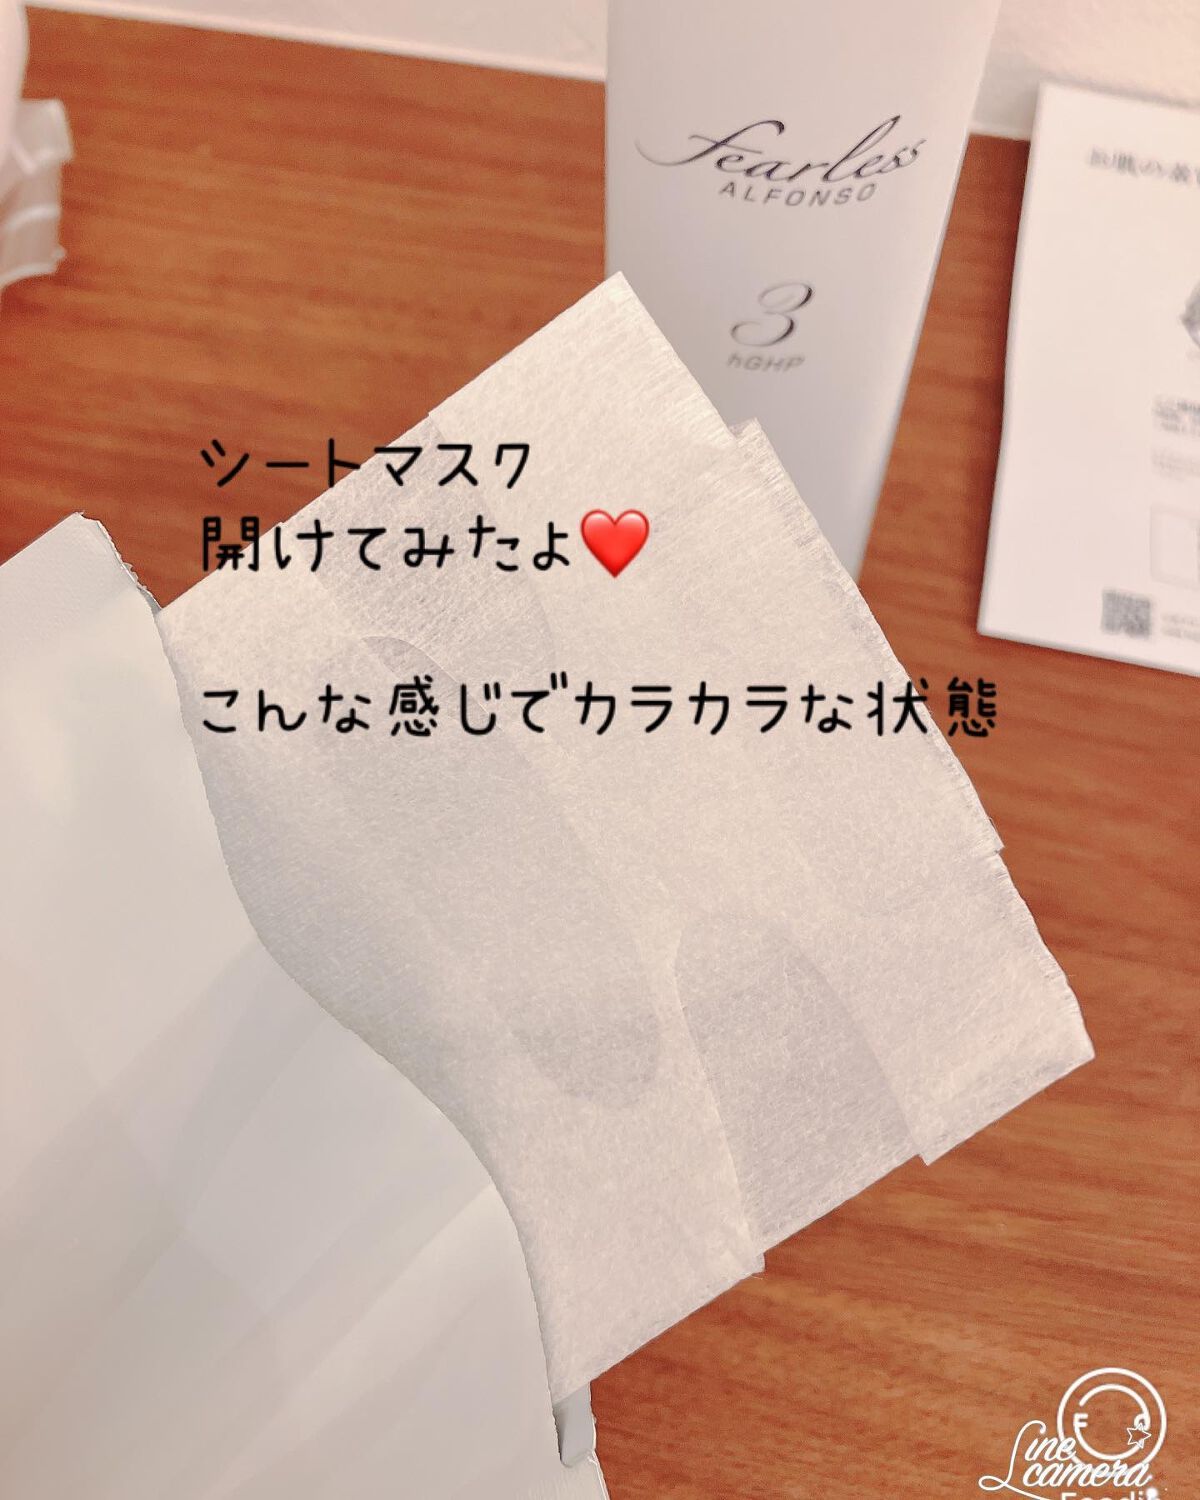 Fearless
ALFONSO
3
hGHP
シートマスク
開けてみたよ❤️
こんな感じでカラカラな状態
Line
camera